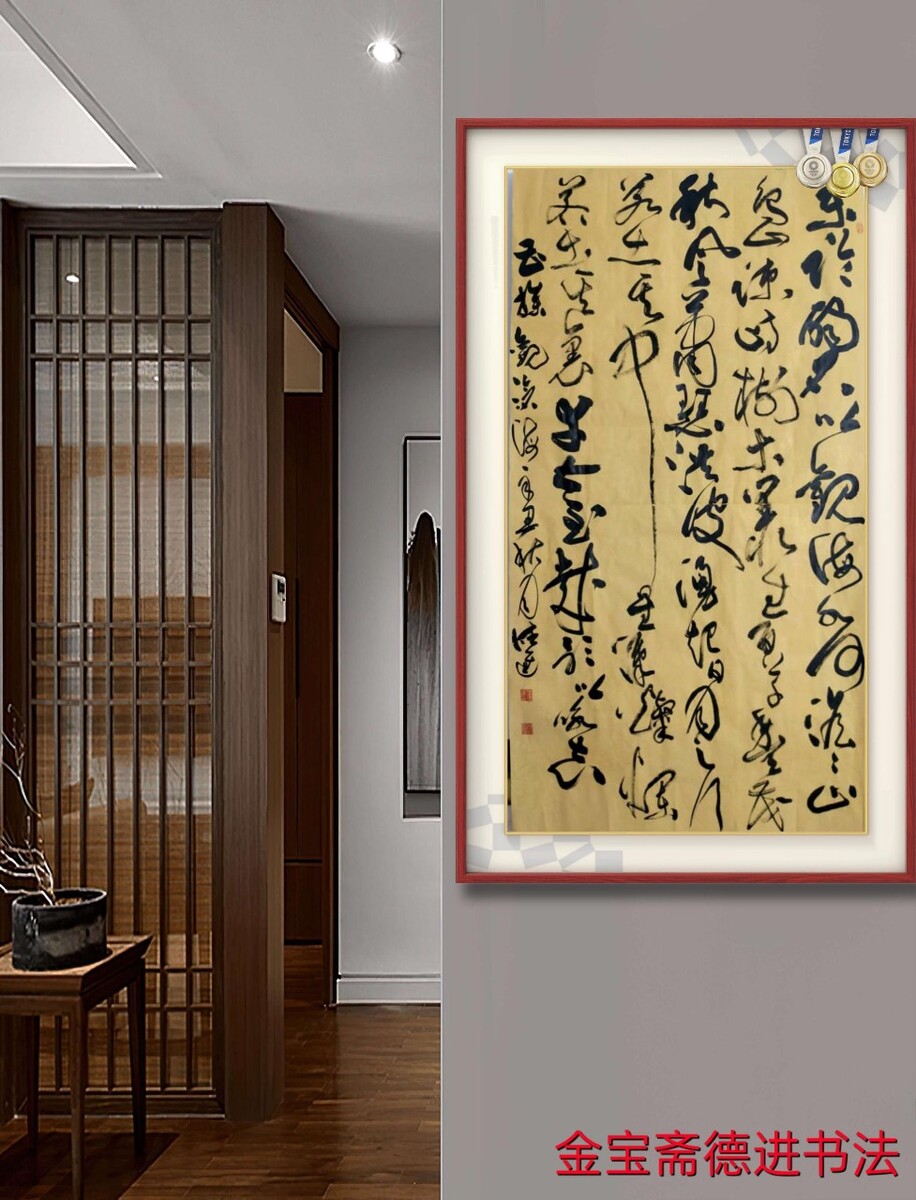 東臨碣石以觀海水何澹〻山
島竦峙樹木叢生百草豐茂
秋風蕭瑟洪波湧起日月之行
若出其中星漢燦爛
若出其裏幸甚至哉歌以咏志
曹操觀滄海辛丑秋月德進
TOKYO
金宝斋德进书法